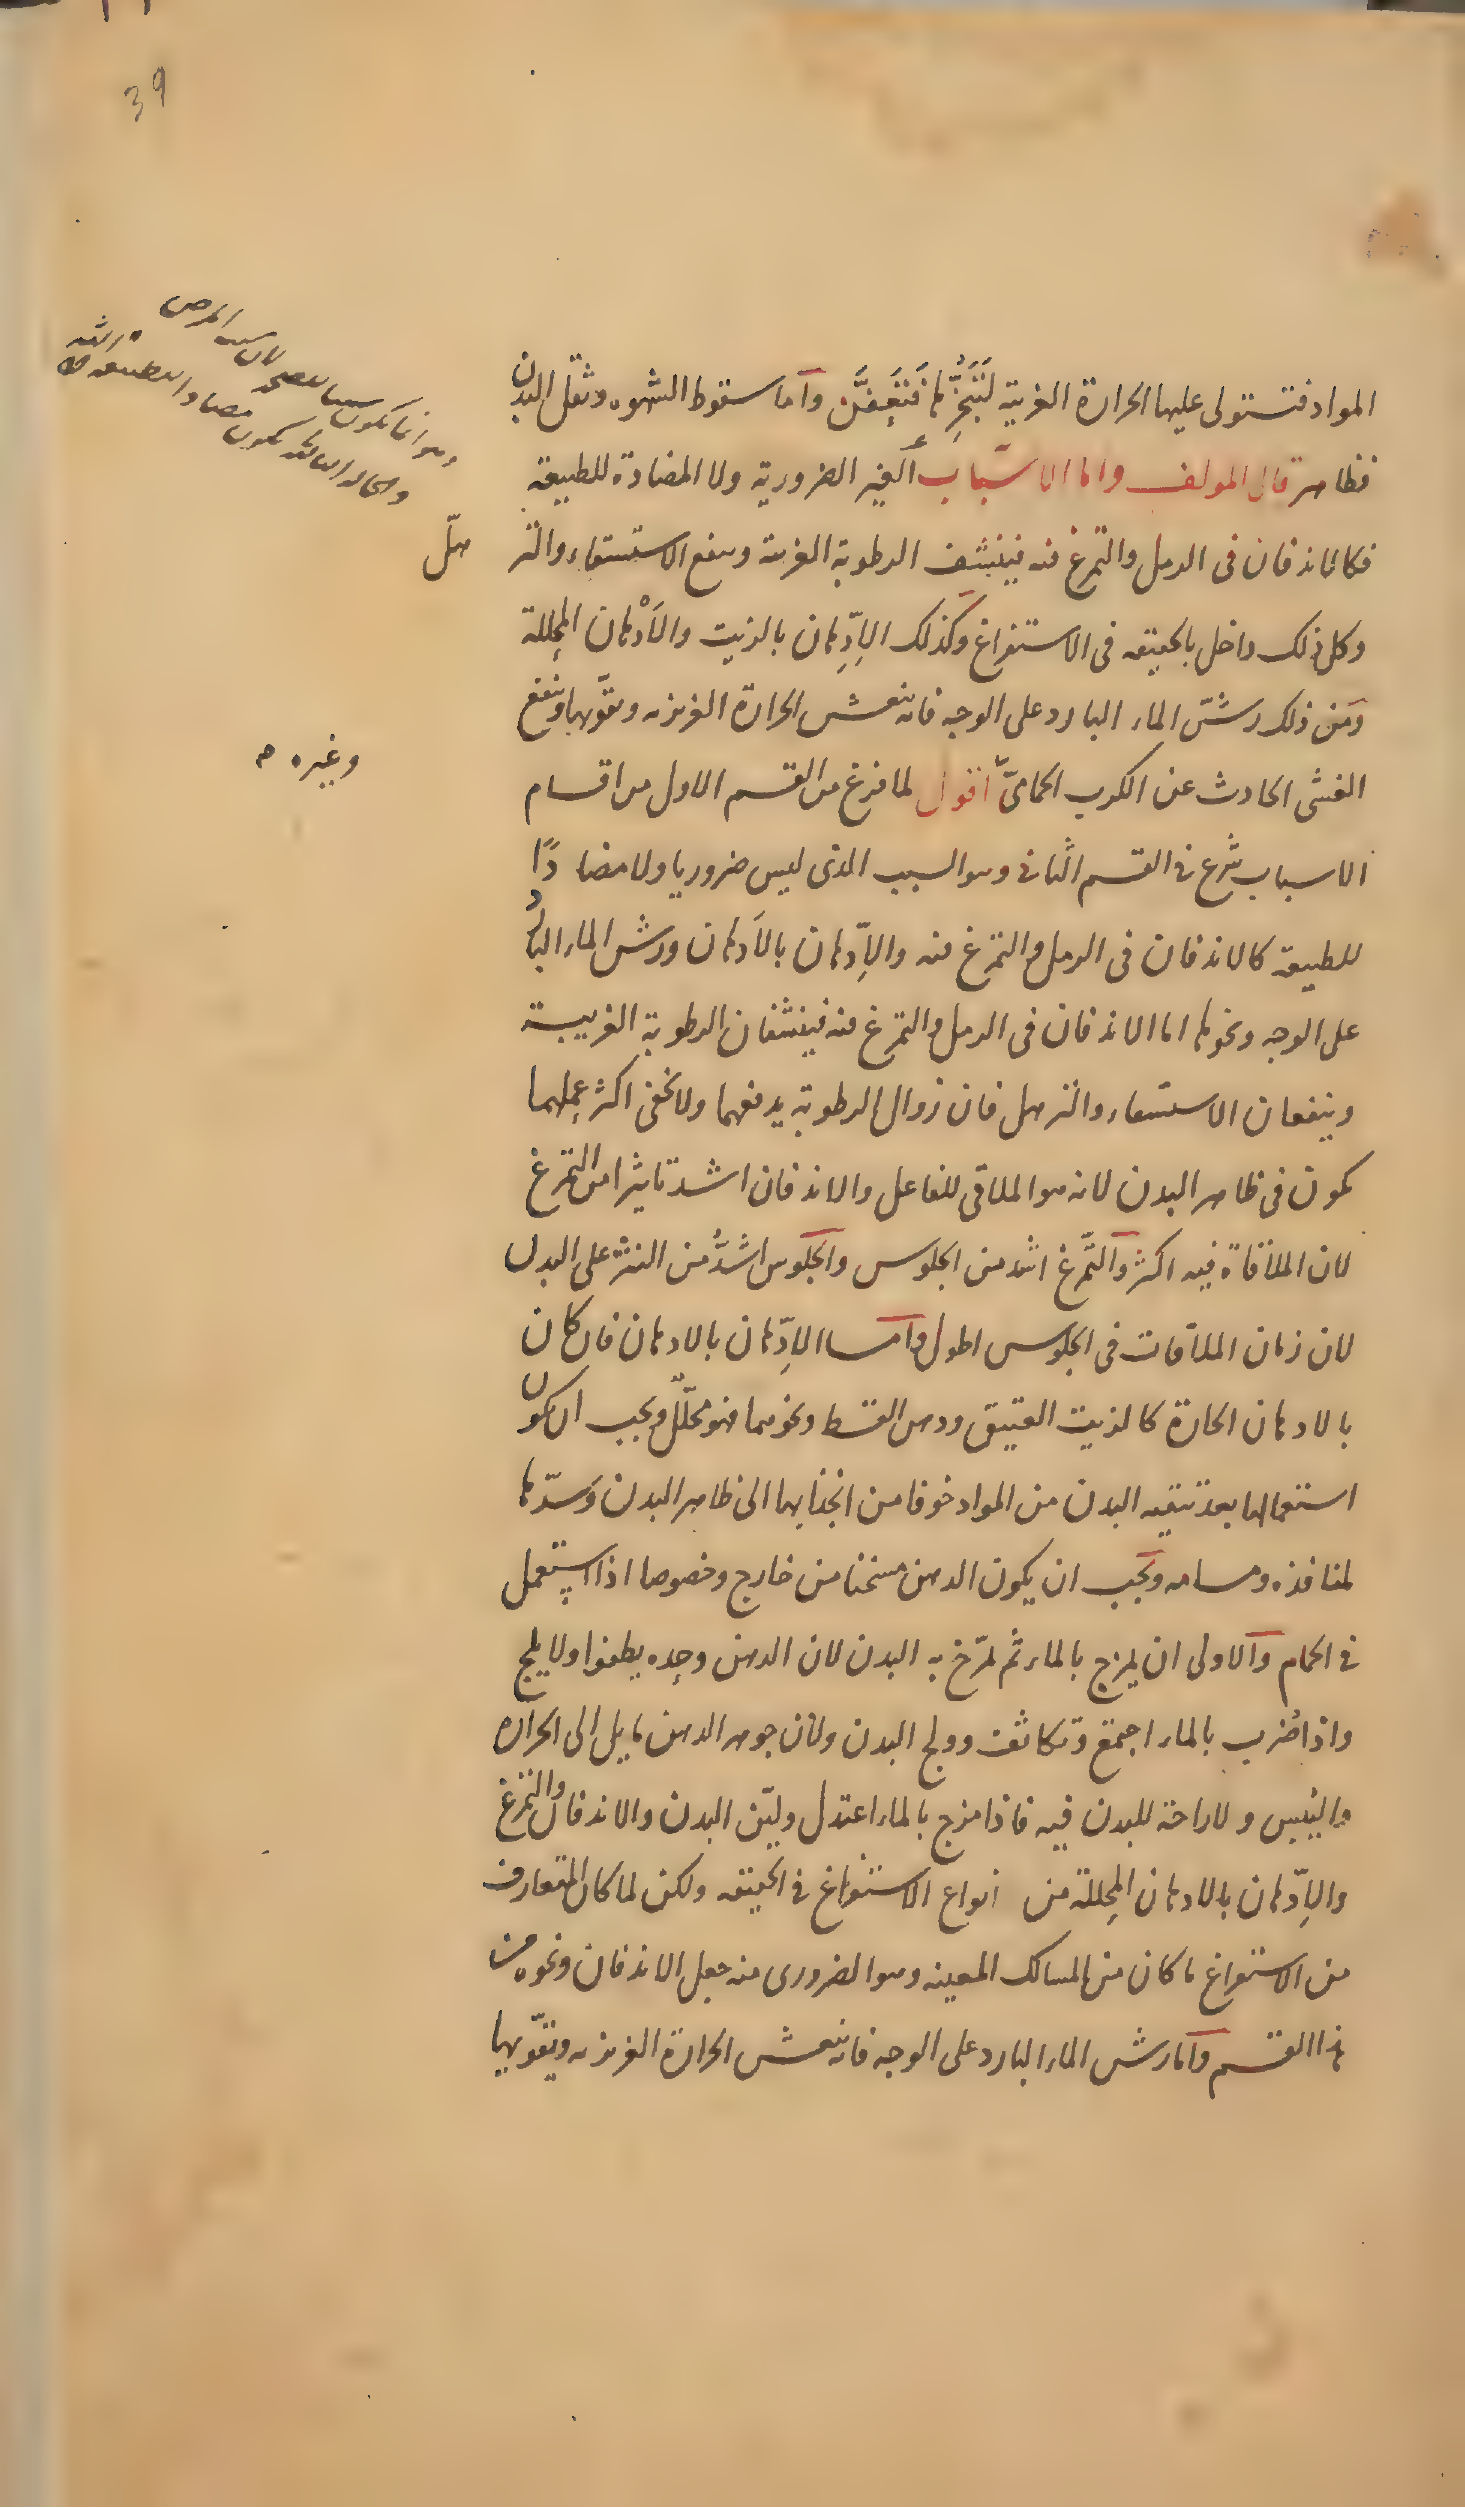 39
المواد فتستولى عليها الحرارة الغريبة لتبخّرها فتعفَّن وآما سقوط الشهوه وثقل البدن
فظاهر قال المولف واما الاسباب الغير الضرورية ولا المضادة للطبيعة
فكالاندفان فى الرمل والتمرغ فيه فينشف الرطوبة الغريبة وينفع الاستسقاء والتر
هّل
وكل ذلك داخل بالحقيقه فى الاستفراغ وكذلك الاِدِّهان بالزيت والاَدْهان المحللة
ومن ذلك رشّ الماء البارد على الوجه فانه ينعش الحرارة الغريزيه ويقوّيها وينفع
الغشى الحادث عن الكرب الحمامىّ اقول لما فرغ من القسم الاول من اقسام
وغيره م
الاسباب شرع فى القسم الثانى وهو السبب الذى ليس ضروريا ولا مضادًا
للطبيعة كالاندفان فى الرمل والتمرغ فيه والاِدّهان بالاَدهان ورش الماء البارد
على الوجه ونحوها اما الاندفان فى الرمل والتمرغ فيه فينشفان الرطوبة الغريبة
وينفعان الاستسقاء والترهل فان زوال الرطوبة يدفعهما ولا يخفى اكثر عملهما
يكون فى ظاهر البدن لانه هو الملاقى للفاعل والاندفان اشد تاثيرا من التمرغ
لان الملاقاة فيه اكثر والتّمرّغ اشد من الجلوس والجلوس اشدُّ من النثر على البدن
لان زمان الملاقات فى الجلوس اطول واما الاِدّهان بالادهان فان كان
بالادهان الحارة كالزيت العتيق ودهن القسط ونحوهما فهو محلّل ويجب ان يكون
استعمالها بعد تنقيه البدن من المواد خوفا من انجذابها الى ظاهر البدن وسدّها
لمنافذه ومسامه ويجب ان يكون الدهن مسخنا من خارج وخصوصا اذا استعمل
فى الحمام والاولى ان يمزج بالماء ثم يمرّخ به البدن لان الدهن وحده يطفوا ولا يلج
واذا ضُرب بالماء اجتمع وتكاثف وولج البدن ولان جوهر الدهن مايل الى الحرارة
واليبس ولا راحة للبدن فيه فاذا مزج بالماء اعتدل وليّن البدن والاندفان والتمرغ
والاِدّهان بالادهان المحللة من انواع الاستفراغ فى الحقيقه ولكن لما كان المتعارف
من الاستفراغ ما كان من المسالك المعينه وهو الضرورى منه جعل الاندفان ونحوه من
هذا القسم وآما رش الماء البارد على الوجه فانه ينعش الحرارة الغريزيه ويقوّيها